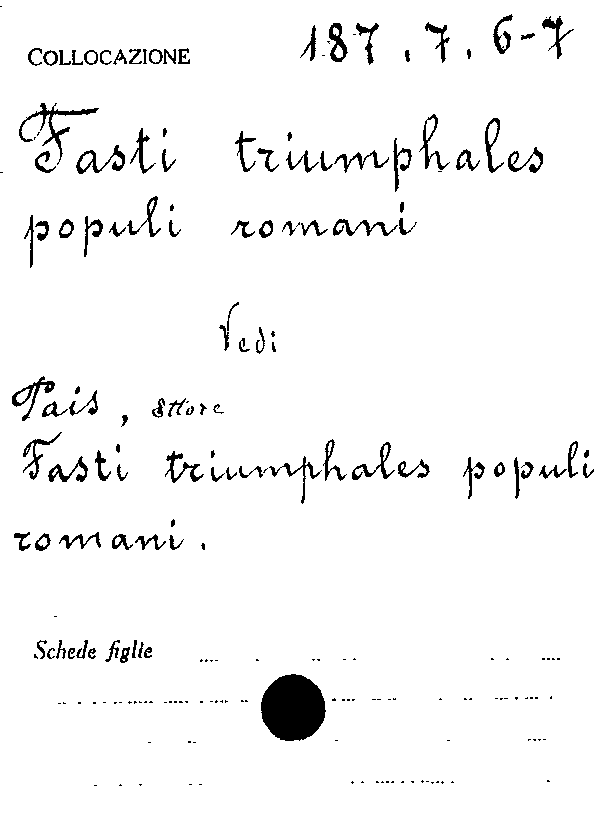 COLLOCAZIONE 187.7.6-7
Fasti triumphales
populi romani
Vedi
Pais, Ettore
Fasti triumphales populi
romani.
Schede figlie